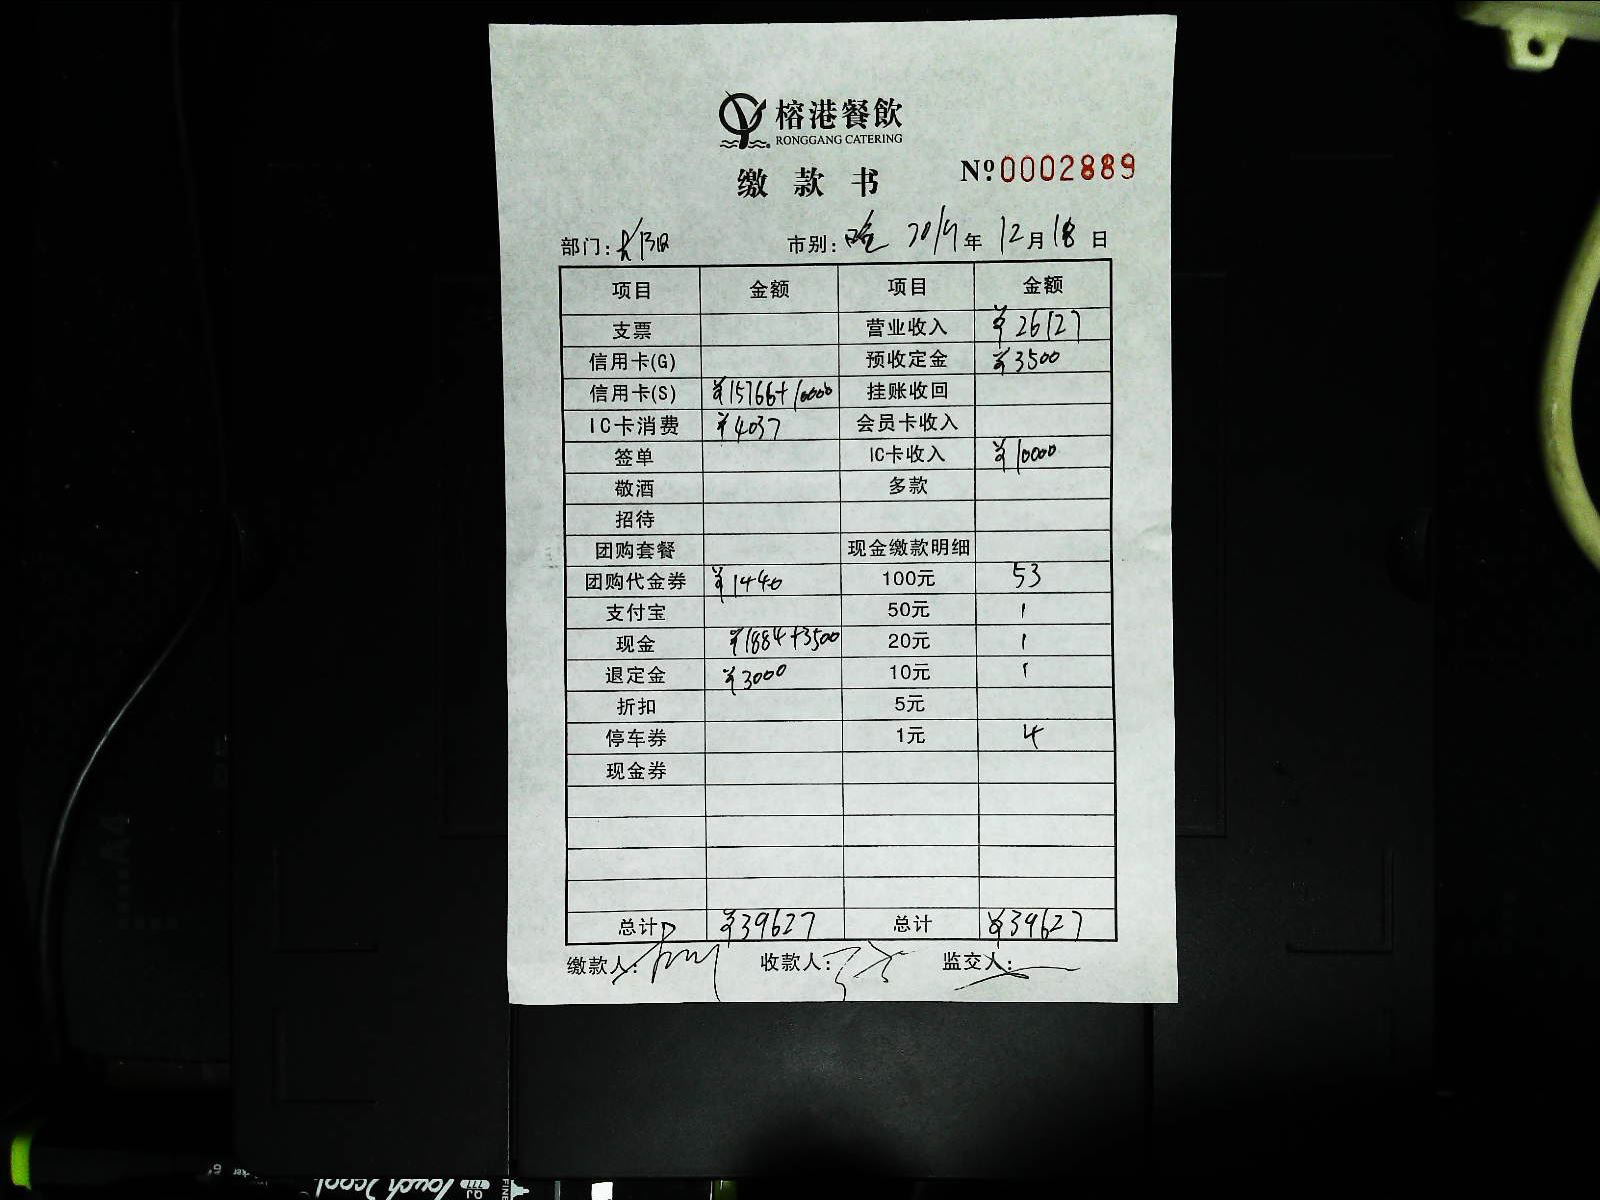 榕港餐飲
RONGGANG CATERING
缴款书 Nº0002889
部门: 市别: 晚 2019年 12月18日
项目 金额 项目 金额
支票 营业收入 ¥26127
信用卡(G) 预收定金 ¥3500
信用卡(S) ¥15766+10000 挂账收回
IC卡消费 ¥4037 会员卡收入
签单 IC卡收入 ¥10000
敬酒 多款
招待
团购套餐 现金缴款明细
团购代金券 ¥1440 100元 53
支付宝 50元 1
现金 ¥1884+3500 20元 1
退定金 ¥3000 10元 1
折扣 5元
停车券 1元 4
现金券
总计 ¥39627 总计 ¥39627
缴款人: 收款人: 监交人: